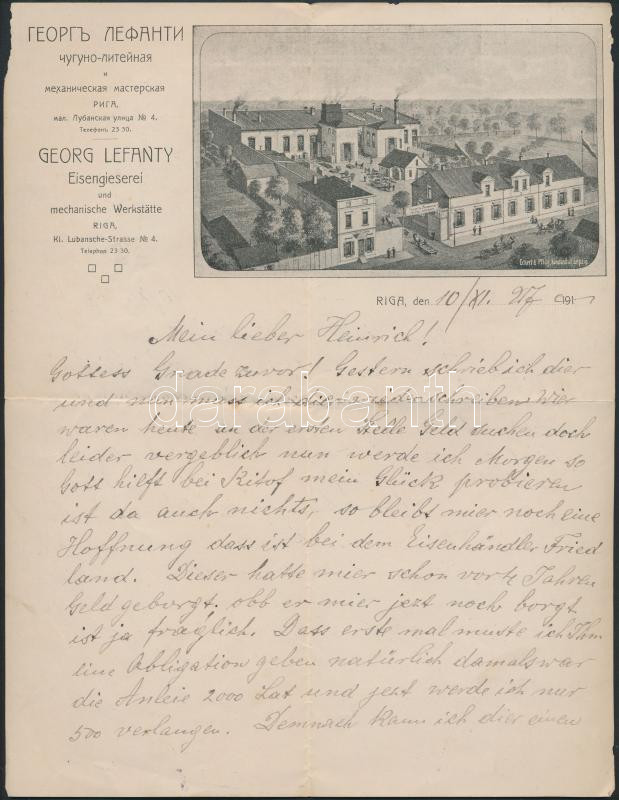 ГЕОРГЪ ЛЕФАНТИ
чугуно-литейная
и
механическая мастерская
РИГА,
мал. Лубанская улица № 4.
Телефонъ 23 30.
GEORG LEFANTY
Eisengieserei
und
mechanische Werkstätte
RIGA,
Kl. Lubansche-Strasse № 4.
Telephon 23 30.
RIGA, den 10/XI. 27 191
Mein lieber Heinrich!
Gottess Gnade zuvor! Gestern schrieb ich dier
und nun muss ich dier wieder schreiben Wier
waren heute an der ersten Stelle Geld suchen doch
leider vergeblich nun werde ich Morgen so
Gott hilft bei Kitof mein Glück probieren
ist da auch nichts, so bleibt mier noch eine
Hoffnung dass ist bei dem Eisenhändler Fried
land. Dieser hatte mier schon vor Jahren
Geld geborgt, obb er mier jezt noch borgt
ist ja fraglich. Dass erste mal muste ich Ihm
eine Obligation geben natürlich damals war
die Anleie 2000 Lat und jezt werde ich nur
500 verlangen. Demnach kann ich dier einen
darabanth